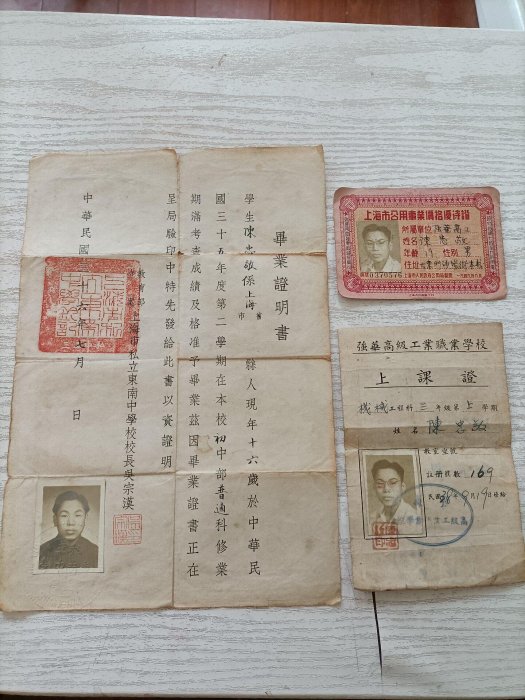 畢業證明書
學生陳忠敏係上海市縣人現年十六歲於中華民
國三十五年度第二學期在本校初中部普通科修業
期滿考查成績及格准予畢業茲因畢業證書正在
呈局驗印中特先發給此書以資證明
上海市私立東南中學校校長吳宗漢
中華民國
年七月 日
上海市公用事業價格優待證
所屬單位 強華高工
姓名 陳忠敏
年齡 19 性別 男
住址
0370576
強華高級工業職業學校
上課證
機械工程科三年級第上學期
姓名 陳忠敏
教室座號
註冊號數 169